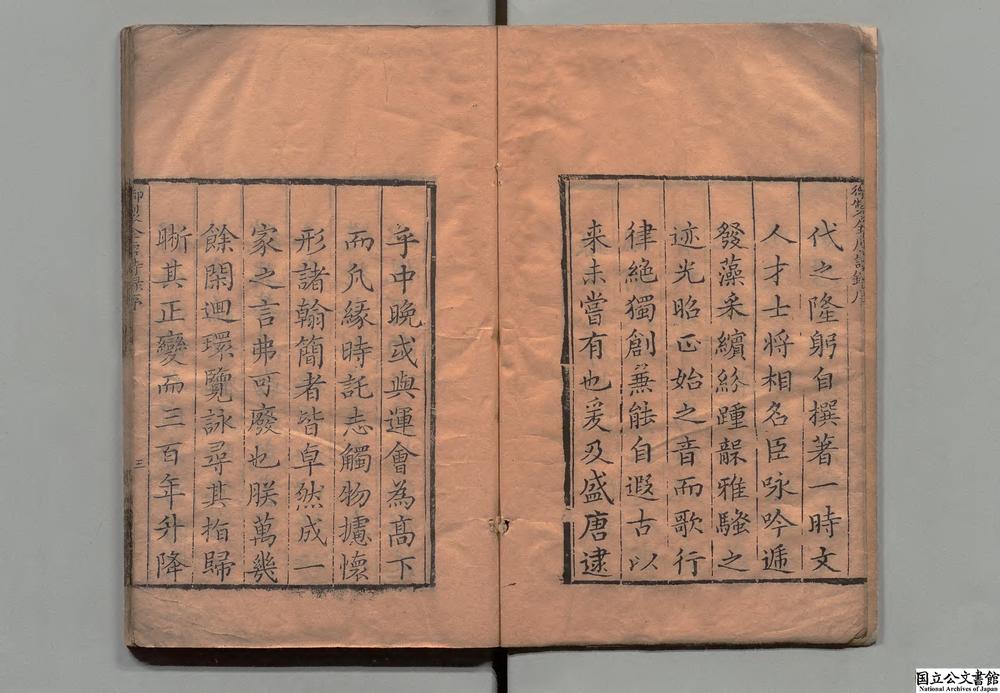 代之隆躬自撰著一時文
人才士將相名臣咏吟遞
發藻采繽紛踵韻雅騷之
迹光昭正始之音而歌行
律絶獨創兼能自遐古以
来未嘗有也爰及盛唐逮
乎中晚或與運會為髙下
而凢緣時託志觸物攄懷
形諸翰簡者皆卓然成一
家之言弗可廢也朕萬㡬
餘閑迴環覽詠尋其指歸
晰其正變而三百年升降
三
国立公文書館
National Archives of Japan